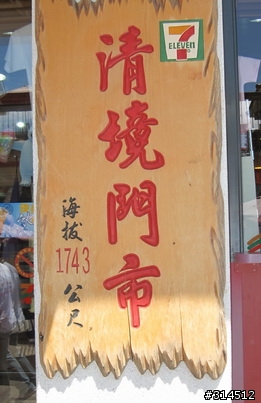 7
ELEVEN
清境門市
海拔
1743
公尺
#314512